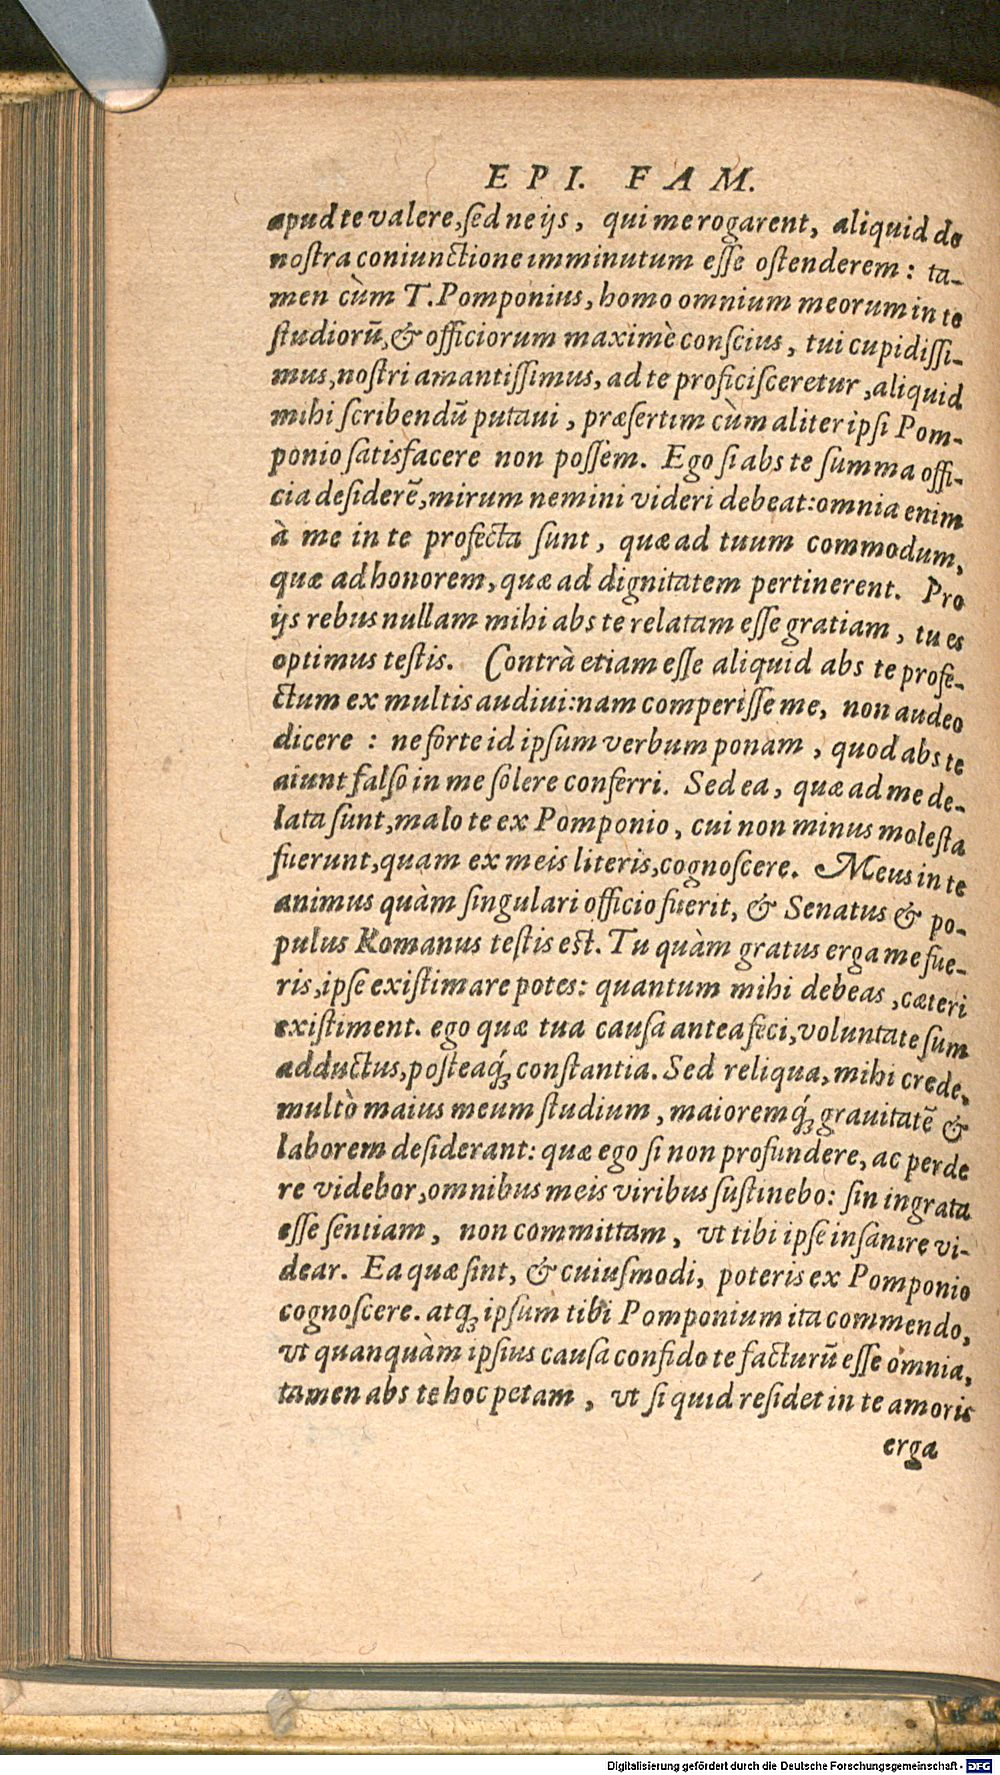 EPI. FAM.
apud te valere, sed ne ijs, qui me rogarent, aliquid de
nostra coniunctione imminutum esse ostenderem: ta-
men cùm T. Pomponius, homo omnium meorum in te
studiorū, & officiorum maximè conscius, tui cupidissi-
mus, nostri amantissimus, ad te proficisceretur, aliquid
mihi scribendū putaui, præsertim cùm aliter ipsi Pom-
ponio satisfacere non possem. Ego si abs te summa offi-
cia desiderē, mirum nemini videri debeat: omnia enim
à me in te profecta sunt, quæ ad tuum commodum,
quæ ad honorem, quæ ad dignitatem pertinerent. Pro
ijs rebus nullam mihi abs te relatam esse gratiam, tu es
optimus testis. Contrà etiam esse aliquid abs te profe-
ctum ex multis audiui: nam comperisse me, non audeo
dicere: ne forte id ipsum verbum ponam, quod abs te
aiunt falso in me solere conferri. Sed ea, quæ ad me de-
lata sunt, malo te ex Pomponio, cui non minus molesta
fuerunt, quam ex meis literis, cognoscere. Meus in te
animus quàm singulari officio fuerit, & Senatus & po-
pulus Romanus testis est. Tu quàm gratus erga me fue-
ris, ipse existimare potes: quantum mihi debeas, cæteri
existiment. ego quæ tua causa antea feci, voluntate sum
adductus, posteaq́; constantia. Sed reliqua, mihi crede,
multò maius meum studium, maioremq́; grauitatē &
laborem desiderant: quæ ego si non profundere, ac perde
re videbor, omnibus meis viribus sustinebo: sin ingrata
esse sentiam, non committam, vt tibi ipse insanire vi-
dear. Ea quæ sint, & cuiusmodi, poteris ex Pomponio
cognoscere. atq; ipsum tibi Pomponium ita commendo,
vt quanquàm ipsius causa confido te facturū esse omnia,
tamen abs te hoc petam, vt si quid residet in te amoris
erga
Digitalisierung gefördert durch die Deutsche Forschungsgemeinschaft - DFG